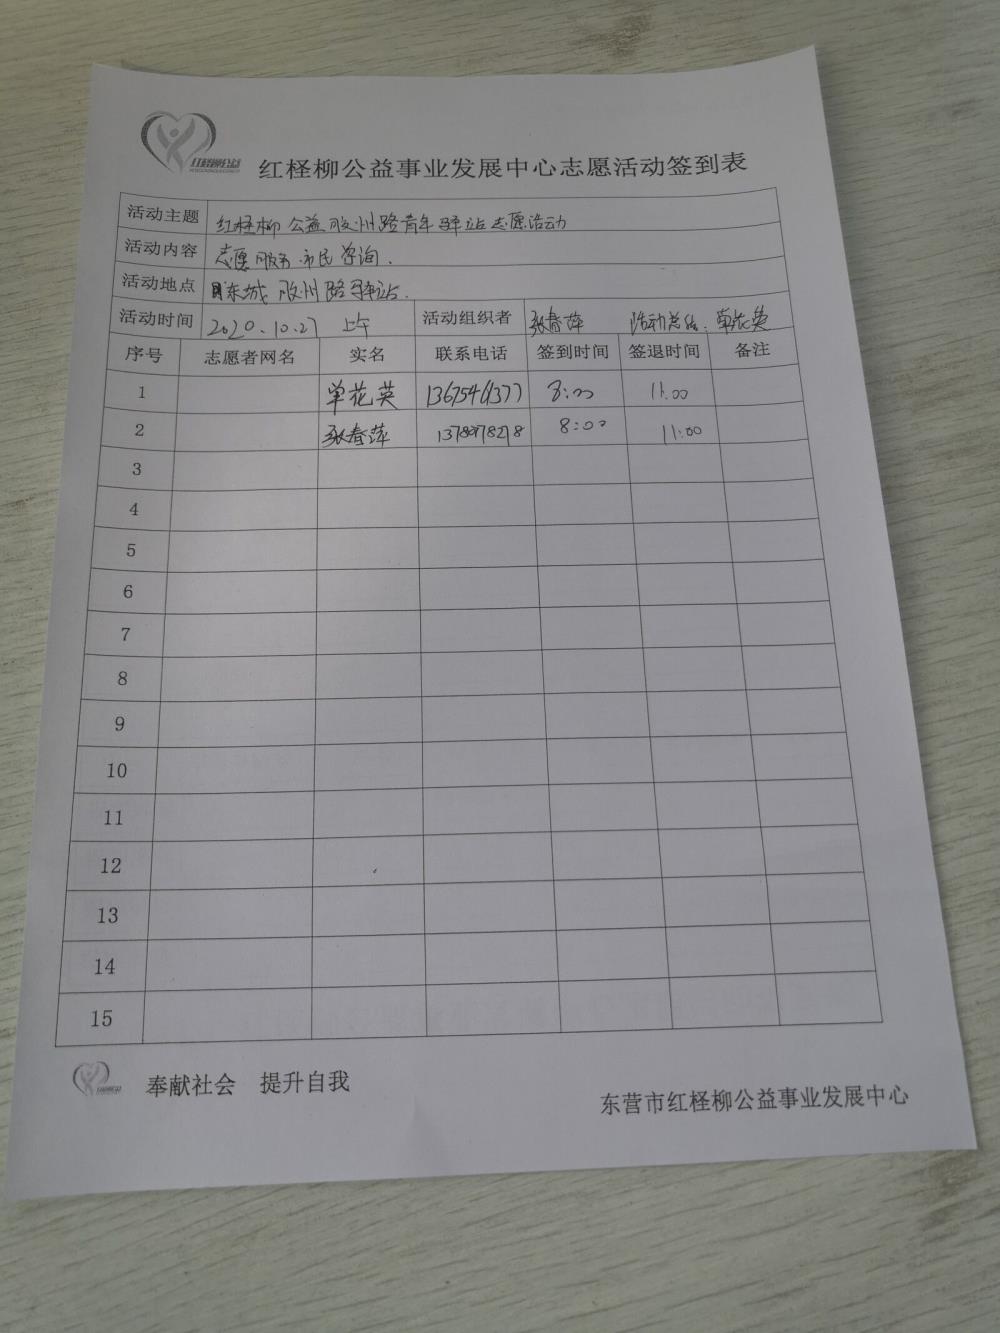 红柽柳公益
红柽柳公益事业发展中心志愿活动签到表
活动主题 红柽柳公益胶州路青年驿站志愿活动
活动内容 志愿服务.市民咨询.
活动地点 东城胶州路驿站.
活动时间 2020.10.27 上午 活动组织者 张春萍 活动总结:单花英
序号 志愿者网名 实名 联系电话 签到时间 签退时间 备注
1 单花英 8:00 11:00
2 张春萍 8:00 11:00
3
4
5
6
7
8
9
10
11
12
13
14
15
奉献社会 提升自我
东营市红柽柳公益事业发展中心